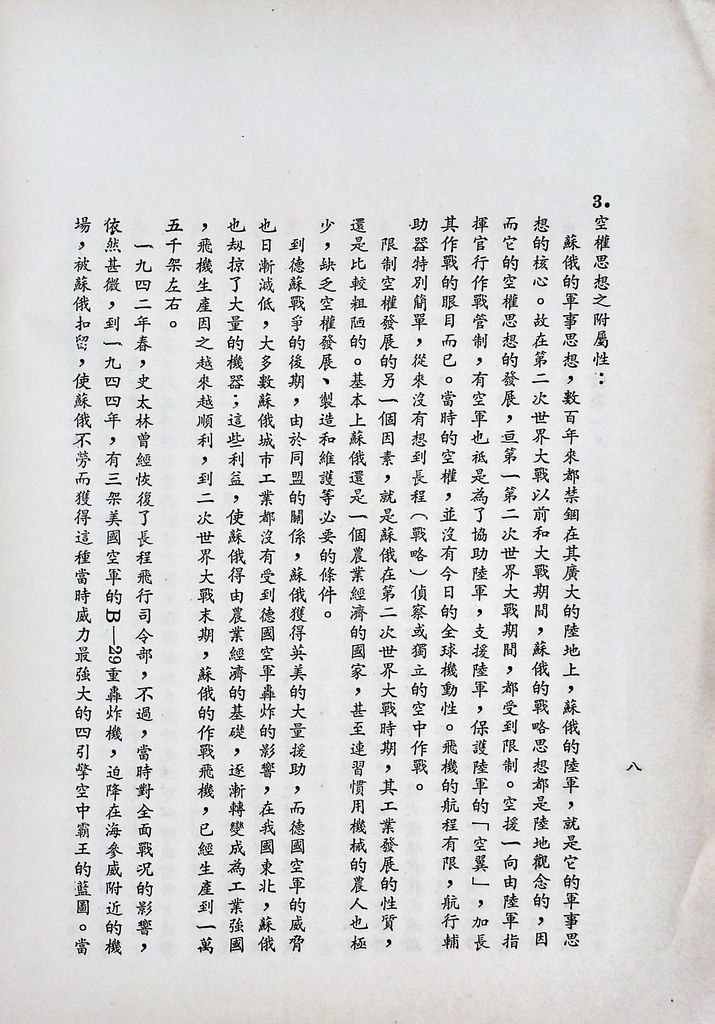 3.空權思想之附屬性：
蘇俄的軍事思想，數百年來都禁錮在其廣大的陸地上，蘇俄的陸軍，就是它的軍事思
想的核心。故在第二次世界大戰以前和大戰期間，蘇俄的戰略思想都是陸地觀念的，因
而它的空權思想的發展，亘第一第二次世界大戰期間，都受到限制。空援一向由陸軍指
揮官行作戰管制，有空軍也祇是為了協助陸軍，支援陸軍，保護陸軍的「空翼」，加長
其作戰的眼目而已。當時的空權，並沒有今日的全球機動性。飛機的航程有限，航行輔
助器特別簡單，從來沒有想到長程（戰略）偵察或獨立的空中作戰。
限制空權發展的另一個因素，就是蘇俄在第二次世界大戰時期，其工業發展的性質，
還是比較粗陋的。基本上蘇俄還是一個農業經濟的國家，甚至連習慣用機械的農人也極
少，缺乏空權發展、製造和維護等必要的條件。
到德蘇戰爭的後期，由於同盟的關係，蘇俄獲得英美的大量援助，而德國空軍的威脅
也日漸減低，大多數蘇俄城市工業都沒有受到德國空軍轟炸的影響，在我國東北，蘇俄
也刼掠了大量的機器；這些利益，使蘇俄得由農業經濟的基礎，逐漸轉變成為工業強國
，飛機生產因之越來越順利，到二次世界大戰末期，蘇俄的作戰飛機，已經生產到一萬
五千架左右。
一九四二年春，史太林曾經恢復了長程飛行司令部，不過，當時對全面戰況的影響，
依然甚微，到一九四四年，有三架美國空軍的B—29重轟炸機，迫降在海參威附近的機
場，被蘇俄扣留，使蘇俄不勞而獲得這種當時威力最強大的四引擎空中霸王的藍圖。當
八